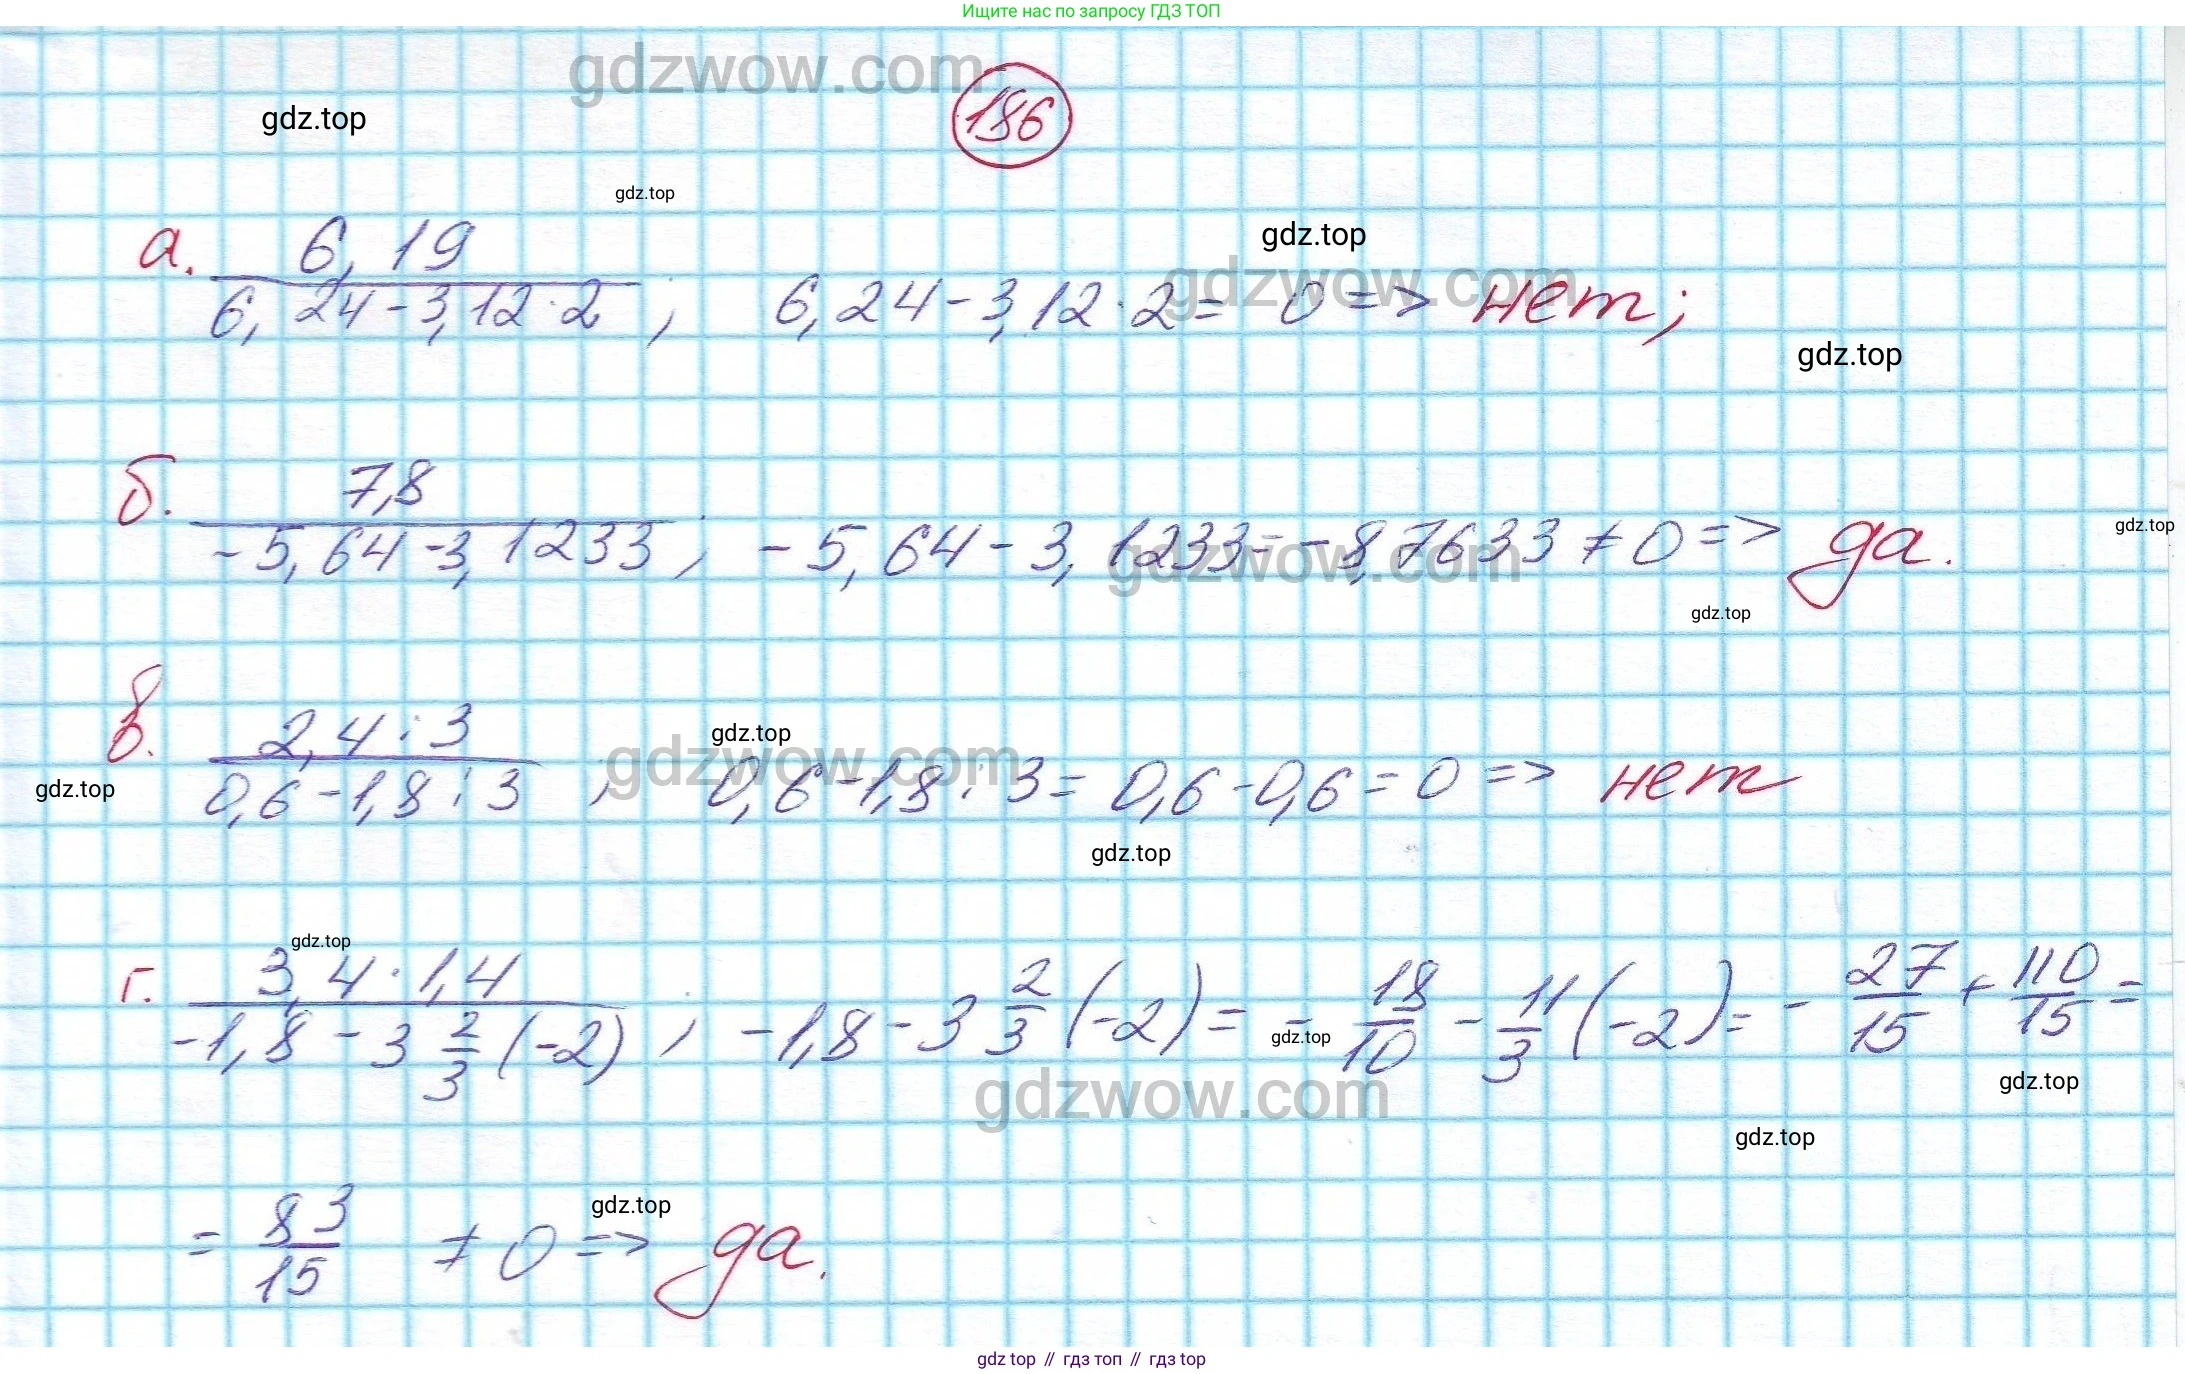 Ищите нас по запросу ГДЗ ТОП
gdzwow.com
186
gdz.top
gdz.top
а. 6,19 / (6,24 - 3,12 · 2) ; 6,24 - 3,12 · 2 = 0 => нет;
gdz.top
gdzwow.com
gdz.top
б. 7,8 / (-5,64 - 3,1233) ; -5,64 - 3,1233 = -8,7633 ≠ 0 => да.
gdz.top
gdzwow.com
gdz.top
в. (2,4 : 3) / (0,6 - 1,8 : 3) ; 0,6 - 1,8 : 3 = 0,6 - 0,6 = 0 => нет
gdz.top
gdzwow.com
gdz.top
gdz.top
gdz.top
г. (3,4 · 1,4) / (-1,8 - 3 2/3 (-2)) ; -1,8 - 3 2/3 (-2) = - 18/10 - 11/3 (-2) = - 27/15 + 110/15 =
gdz.top
gdz.top
gdzwow.com
gdz.top
= 83/15 ≠ 0 => да.
gdz.top
gdz top // гдз топ // гдз top